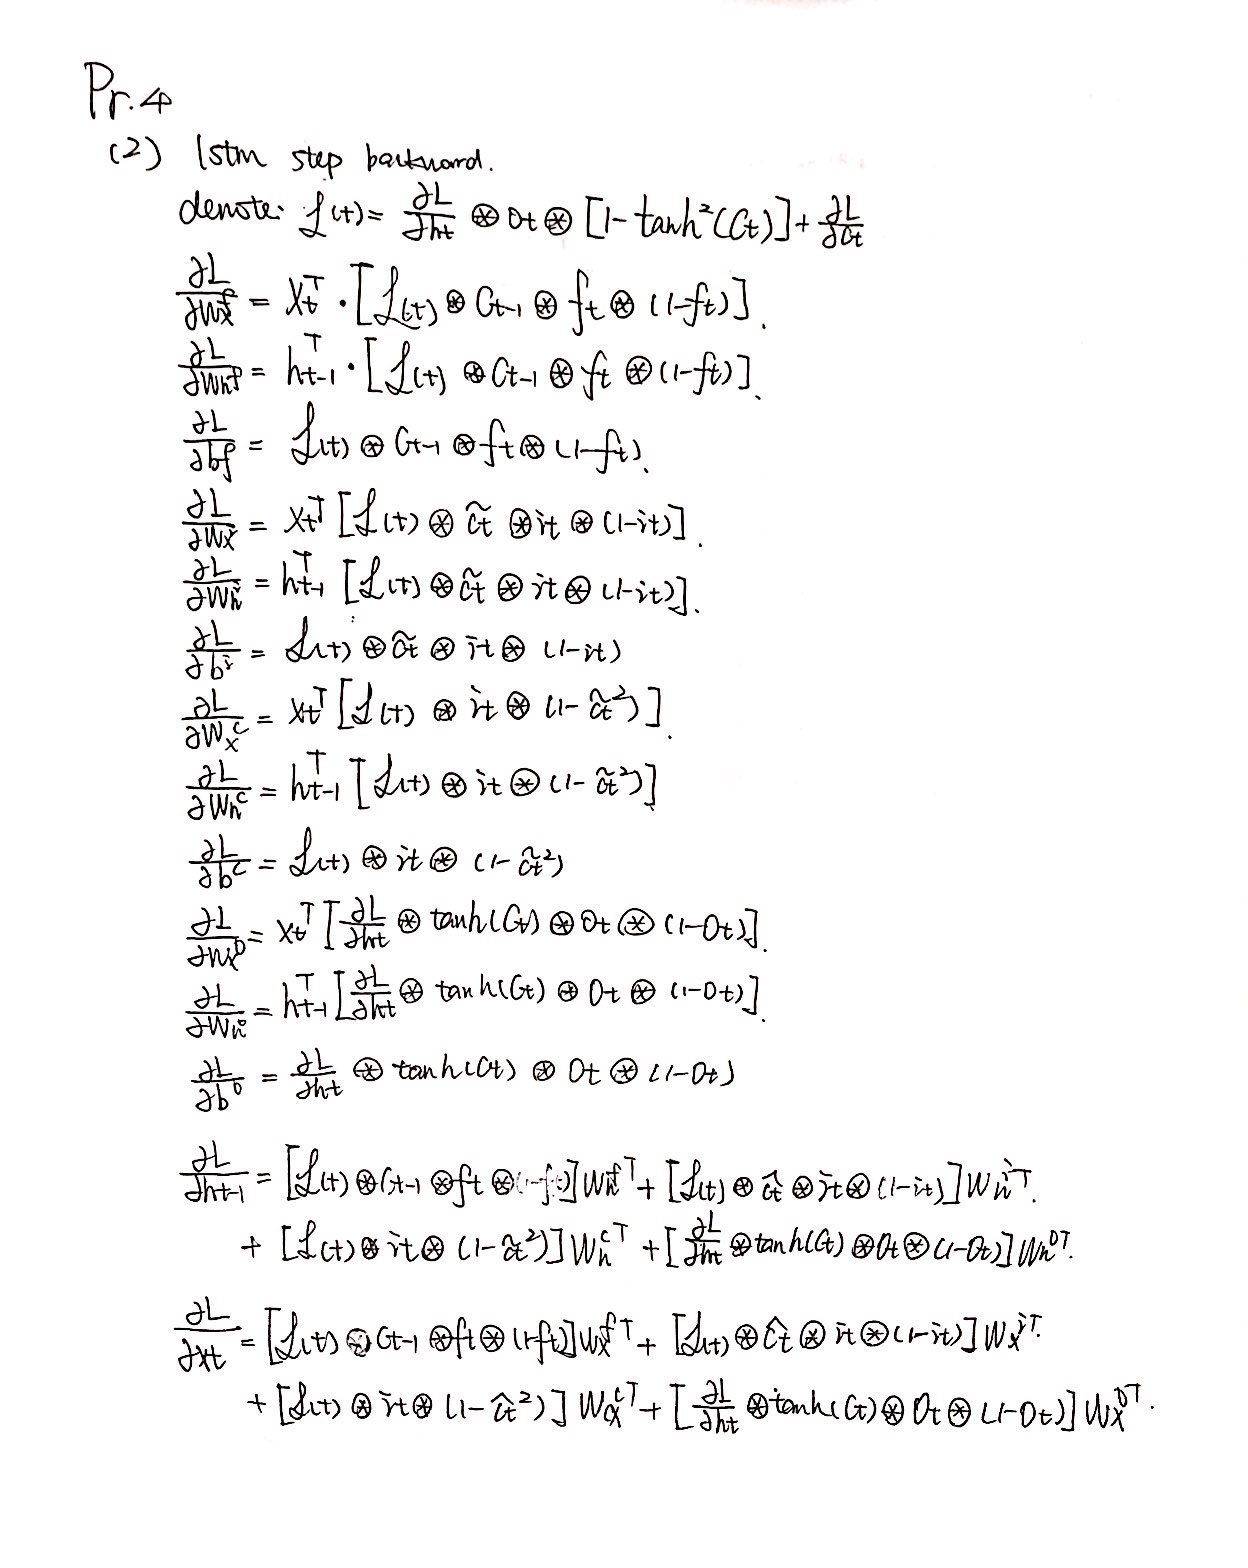 Pr.4
(2) lstm step backward.
denote: ℒ(t) = ∂L/∂ht ⊛ Ot ⊛ [1-tanh²(Ct)] + ∂L/∂Ct
∂L/∂Wx^f = Xt^T · [ℒ(t) ⊛ Ct-1 ⊛ ft ⊛ (1-ft)].
∂L/∂Wh^f = ht-1^T · [ℒ(t) ⊛ Ct-1 ⊛ ft ⊛ (1-ft)].
∂L/∂b^f = ℒ(t) ⊛ Ct-1 ⊛ ft ⊛ (1-ft).
∂L/∂Wx^i = Xt^T [ℒ(t) ⊛ c̃t ⊛ it ⊛ (1-it)].
∂L/∂Wh^i = ht-1^T [ℒ(t) ⊛ c̃t ⊛ it ⊛ (1-it)].
∂L/∂b^i = ℒ(t) ⊛ c̃t ⊛ it ⊛ (1-it)
∂L/∂Wx^c = Xt^T [ℒ(t) ⊛ it ⊛ (1-c̃t²)].
∂L/∂Wh^c = ht-1^T [ℒ(t) ⊛ it ⊛ (1-c̃t²)]
∂L/∂b^c = ℒ(t) ⊛ it ⊛ (1-c̃t²)
∂L/∂Wx^o = Xt^T [∂L/∂ht ⊛ tanh(Ct) ⊛ Ot ⊛ (1-Ot)].
∂L/∂Wh^o = ht-1^T [∂L/∂ht ⊛ tanh(Ct) ⊛ Ot ⊛ (1-Ot)].
∂L/∂b^o = ∂L/∂ht ⊛ tanh(Ct) ⊛ Ot ⊛ (1-Ot)
∂L/∂ht-1 = [ℒ(t) ⊛ Ct-1 ⊛ ft ⊛ (1-ft)] Wh^fT + [ℒ(t) ⊛ ĉt ⊛ it ⊛ (1-it)] Wh^iT.
+ [ℒ(t) ⊛ it ⊛ (1-c̃t²)] Wh^cT + [∂L/∂ht ⊛ tanh(Ct) ⊛ Ot ⊛ (1-Ot)] Wh^oT.
∂L/∂xt = [ℒ(t) ⊛ Ct-1 ⊛ ft ⊛ (1-ft)] Wx^fT + [ℒ(t) ⊛ ĉt ⊛ it ⊛ (1-it)] Wx^iT.
+ [ℒ(t) ⊛ it ⊛ (1-ĉt²)] Wx^cT + [∂L/∂ht ⊛ tanh(Ct) ⊛ Ot ⊛ (1-Ot)] Wx^oT.